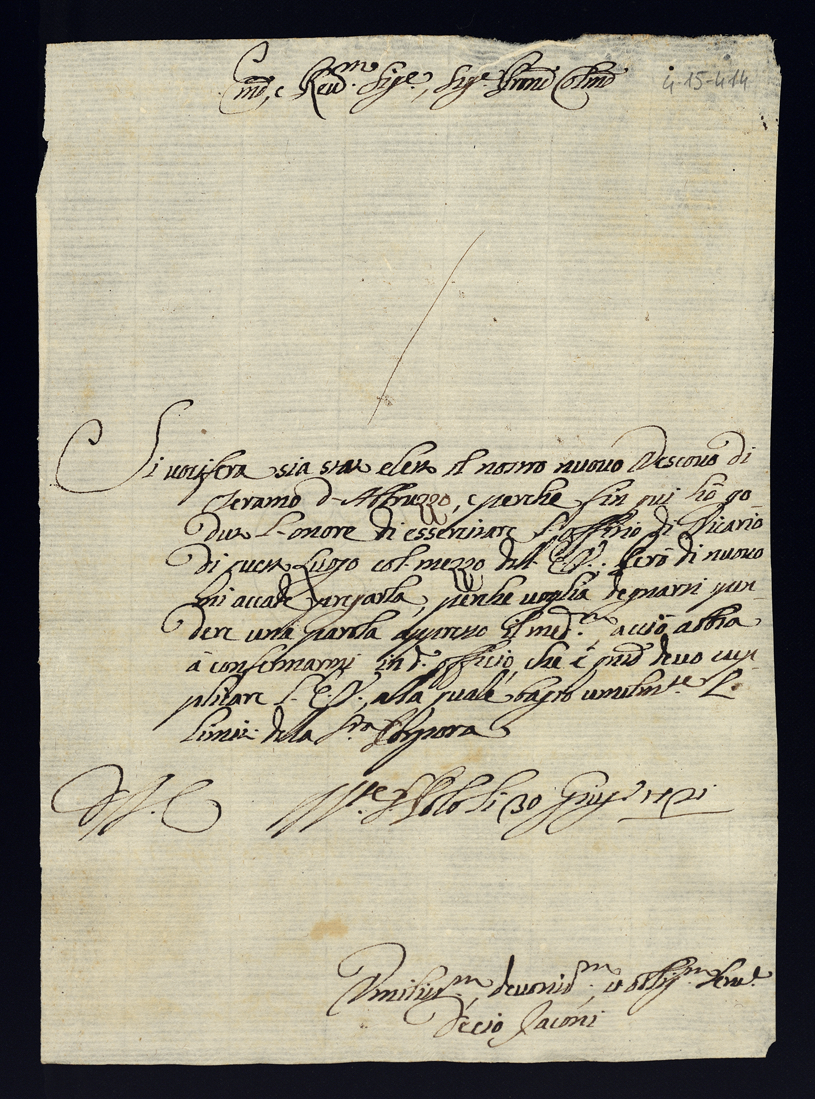 Em̃o, e Reud.m Sig.e, Sig.e Prõn Colmõ
4-15-414
Si uocifera sia stato eletto il nostro nuouo Vescouo di
Teramo d'Abbruzzo, e perche fin qui hò go
duto l'onore di essercitare l'officio di Vicario
di quel Luogo col mezzo dell' E.V. Però di nuouo
mi accade pregarla, perche uoglia degnarsi spen-
dere una parola appresso il med.m, acciò abbia
à confermarmi in d.o officio, che è quãto deuo sup-
plicare l' E.V., alla quale bagio umilm.te l
limine della Porpora
D. V. E. li 30 Giug.o 1721
Umiliss.m, deuotiss.m, et obblig.m Seru.e
Decio Jaconi